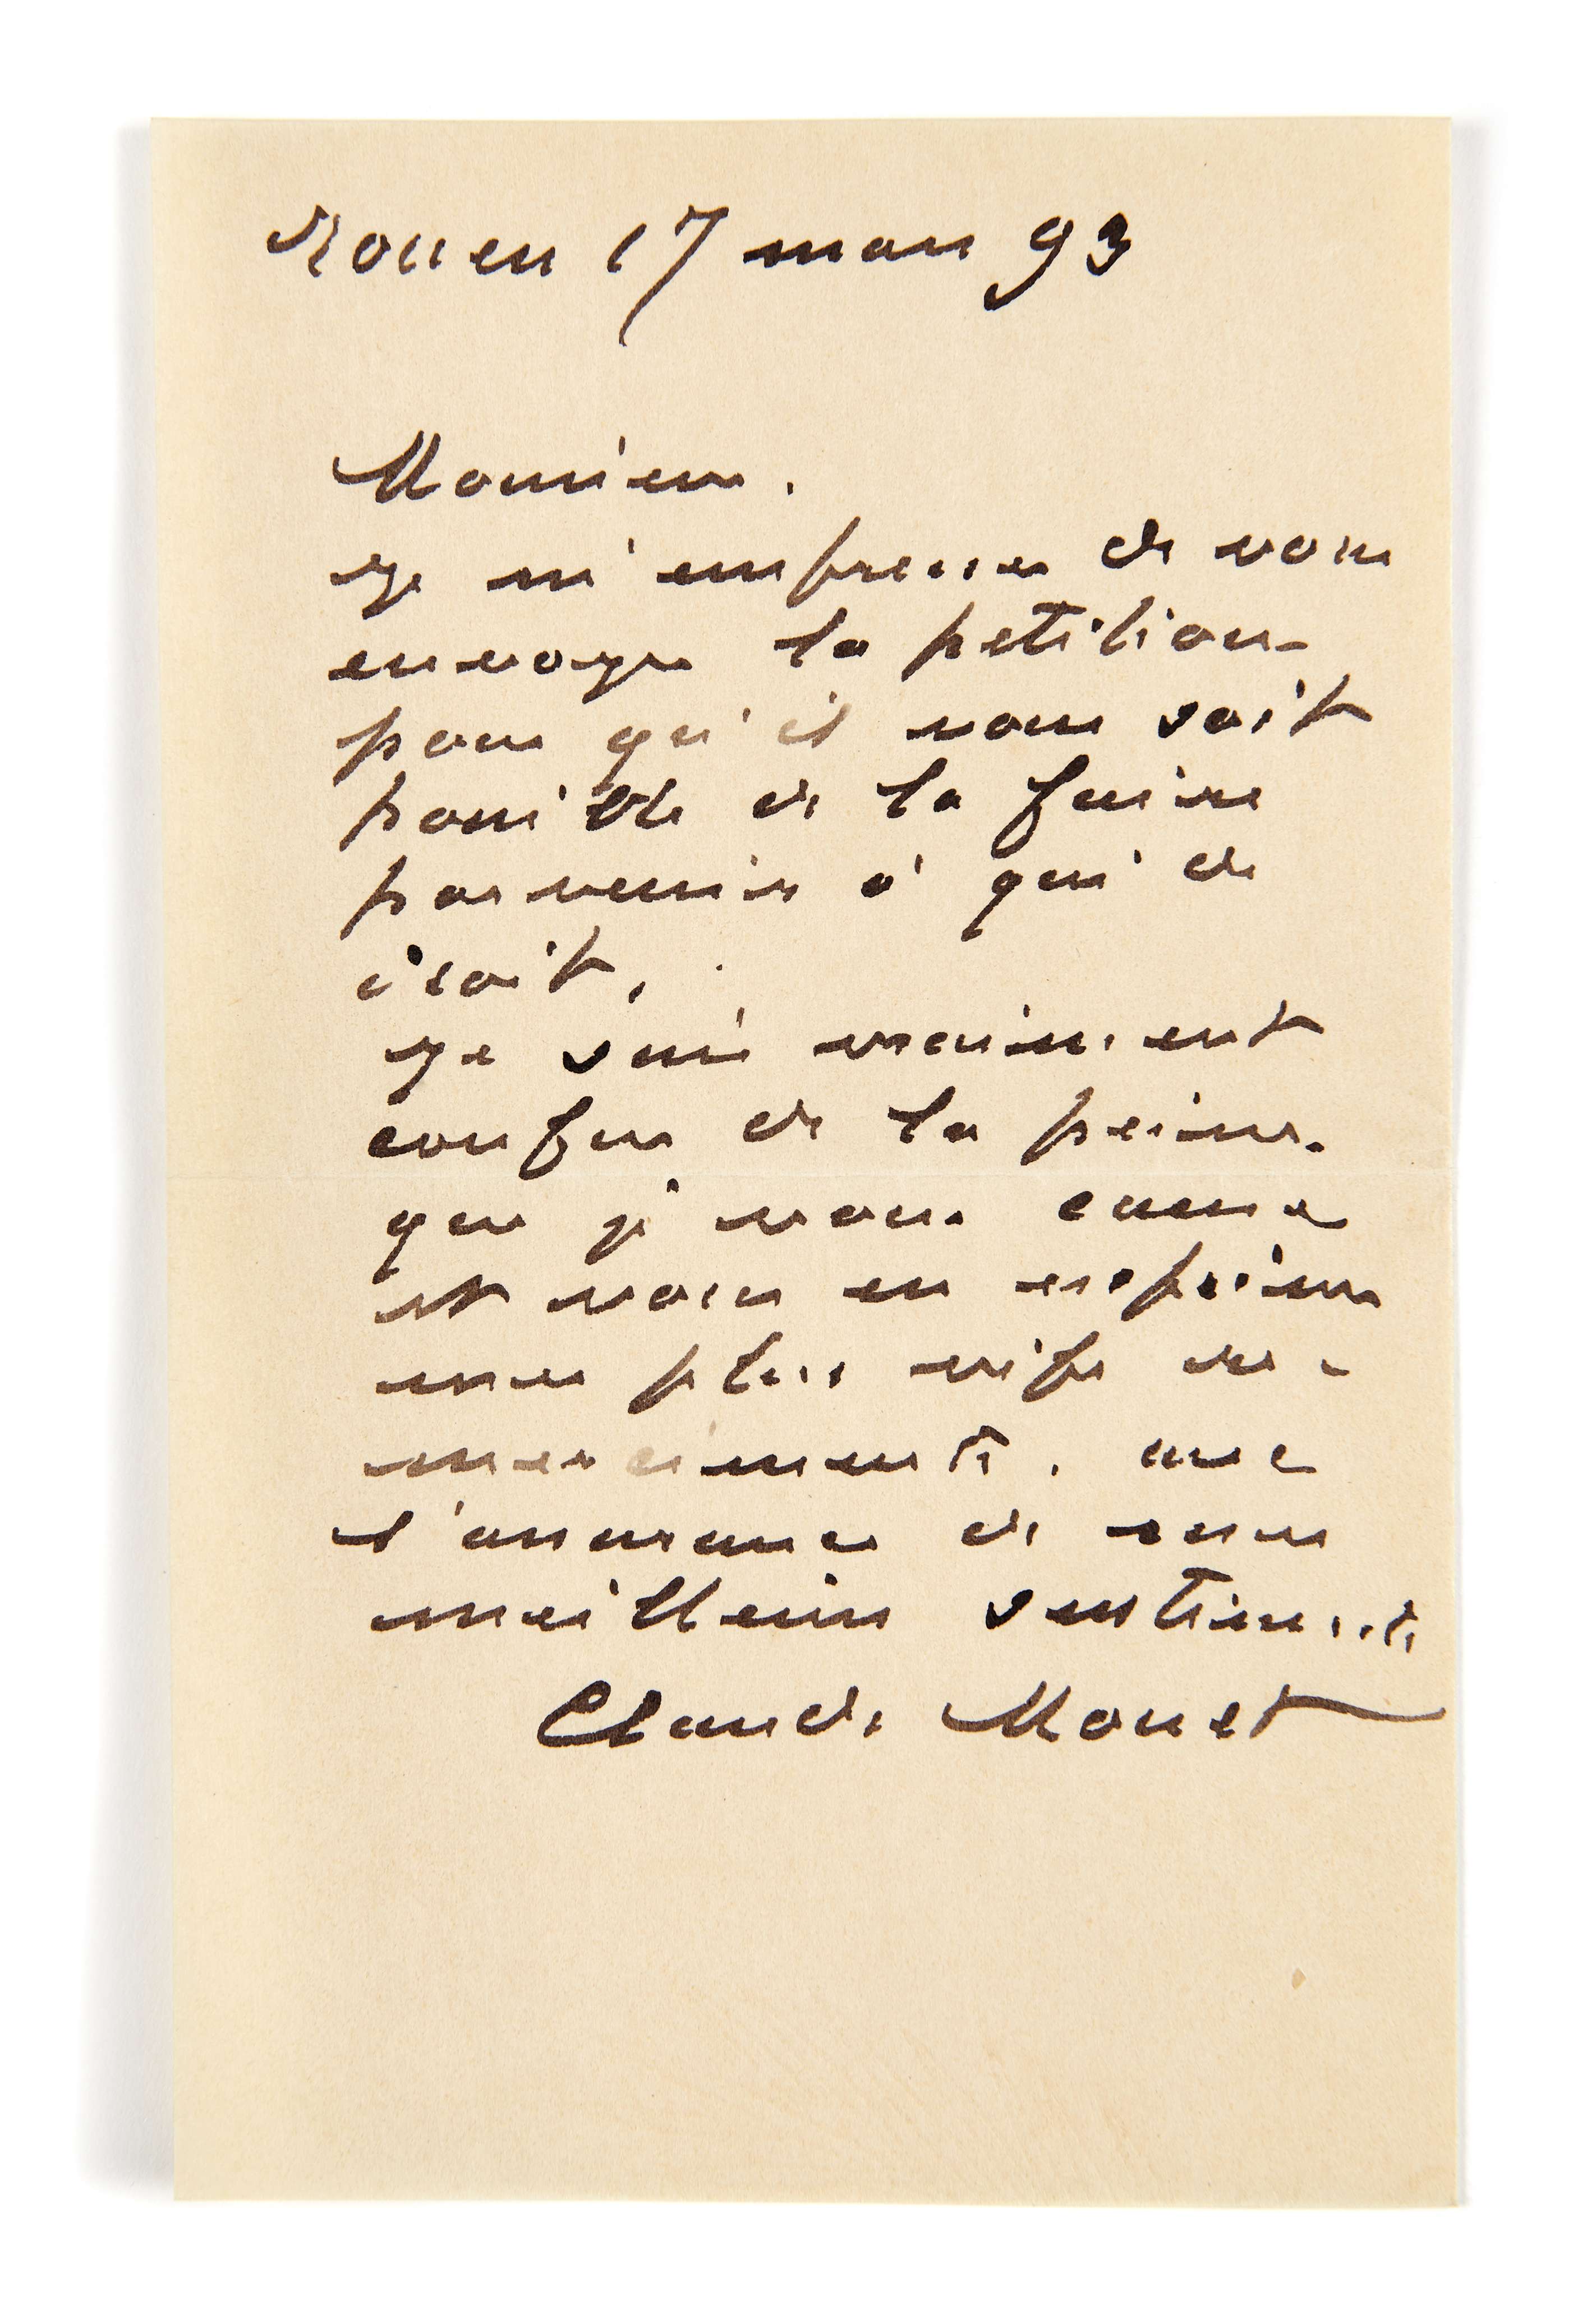 Rouen 17 mars 93
Monsieur.
Je m'empresse de vous
envoyer la petition
pour qu'il vous soit
possible de la faire
parvenir à qui de
droit,
Je suis vraiment
confus de la peine
que je vous cause
et vous en exprime
mes plus vifs re-
merciments. avec
l'assurance de mes
meilleurs sentiments
Claude Monet